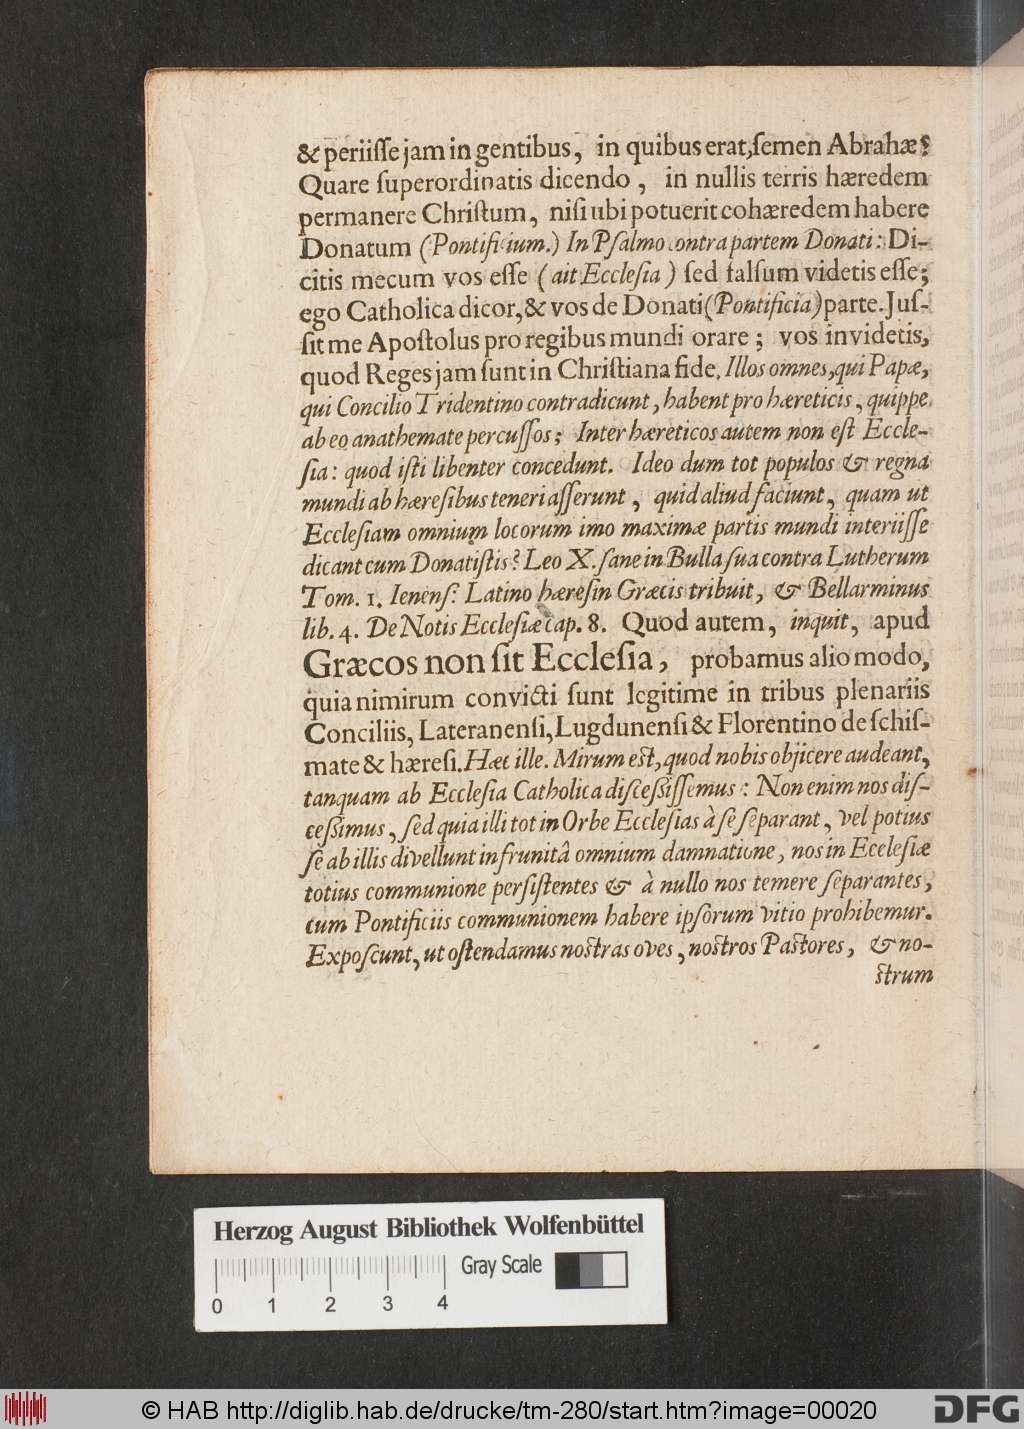 & periiſſe jam in gentibus, in quibus erat, ſemen Abrahæ?
Quare ſuperordinatis dicendo, in nullis terris hæredem
permanere Chriſtum, niſi ubi potuerit cohæredem habere
Donatum (Pontificium.) In Pſalmo contra partem Donati: Di-
citis mecum vos eſſe (ait Eccleſia) ſed falſum videtis eſſe;
ego Catholica dicor, & vos de Donati (Pontificia) parte. Juſ-
ſit me Apoſtolus pro regibus mundi orare; vos invidetis,
quod Reges jam ſunt in Chriſtiana fide. Illos omnes, qui Papæ,
qui Concilio Tridentino contradicunt, habent pro hæreticis, quippe
ab eo anathemate percuſſos; Inter hæreticos autem non eſt Eccle-
ſia: quod iſti libenter concedunt. Ideo dum tot populos & regna
mundi ab hæreſibus teneri aſſerunt, quid aliud faciunt, quam ut
Eccleſiam omnium locorum imo maximæ partis mundi interiiſſe
dicant cum Donatiſtis? Leo X. ſane in Bulla ſua contra Lutherum
Tom. 1. Ienenſ: Latino hæreſin Græcis tribuit, & Bellarminus
lib. 4. De Notis Eccleſiæ cap. 8. Quod autem, inquit, apud
Græcos non ſit Eccleſia, probamus alio modo,
quia nimirum convicti ſunt legitime in tribus plenariis
Conciliis, Lateranenſi, Lugdunenſi & Florentino de ſchiſ-
mate & hæreſi. Hæc ille. Mirum eſt, quod nobis objicere audeant,
tanquam ab Eccleſia Catholica diſceſſiſſemus: Non enim nos diſ-
ceſſimus, ſed quia illi tot in Orbe Eccleſias à ſe ſeparant, vel potius
ſe ab illis divellunt infrunitâ omnium damnatione, nos in Eccleſiæ
totius communione perſiſtentes & à nullo nos temere ſeparantes,
cum Pontificiis communionem habere ipſorum vitio prohibemur.
Expoſcunt, ut oſtendamus noſtras oves, noſtros Paſtores, & no-
ſtrum
Herzog August Bibliothek Wolfenbüttel
Gray Scale
0 1 2 3 4
© HAB http://diglib.hab.de/drucke/tm-280/start.htm?image=00020
DFG